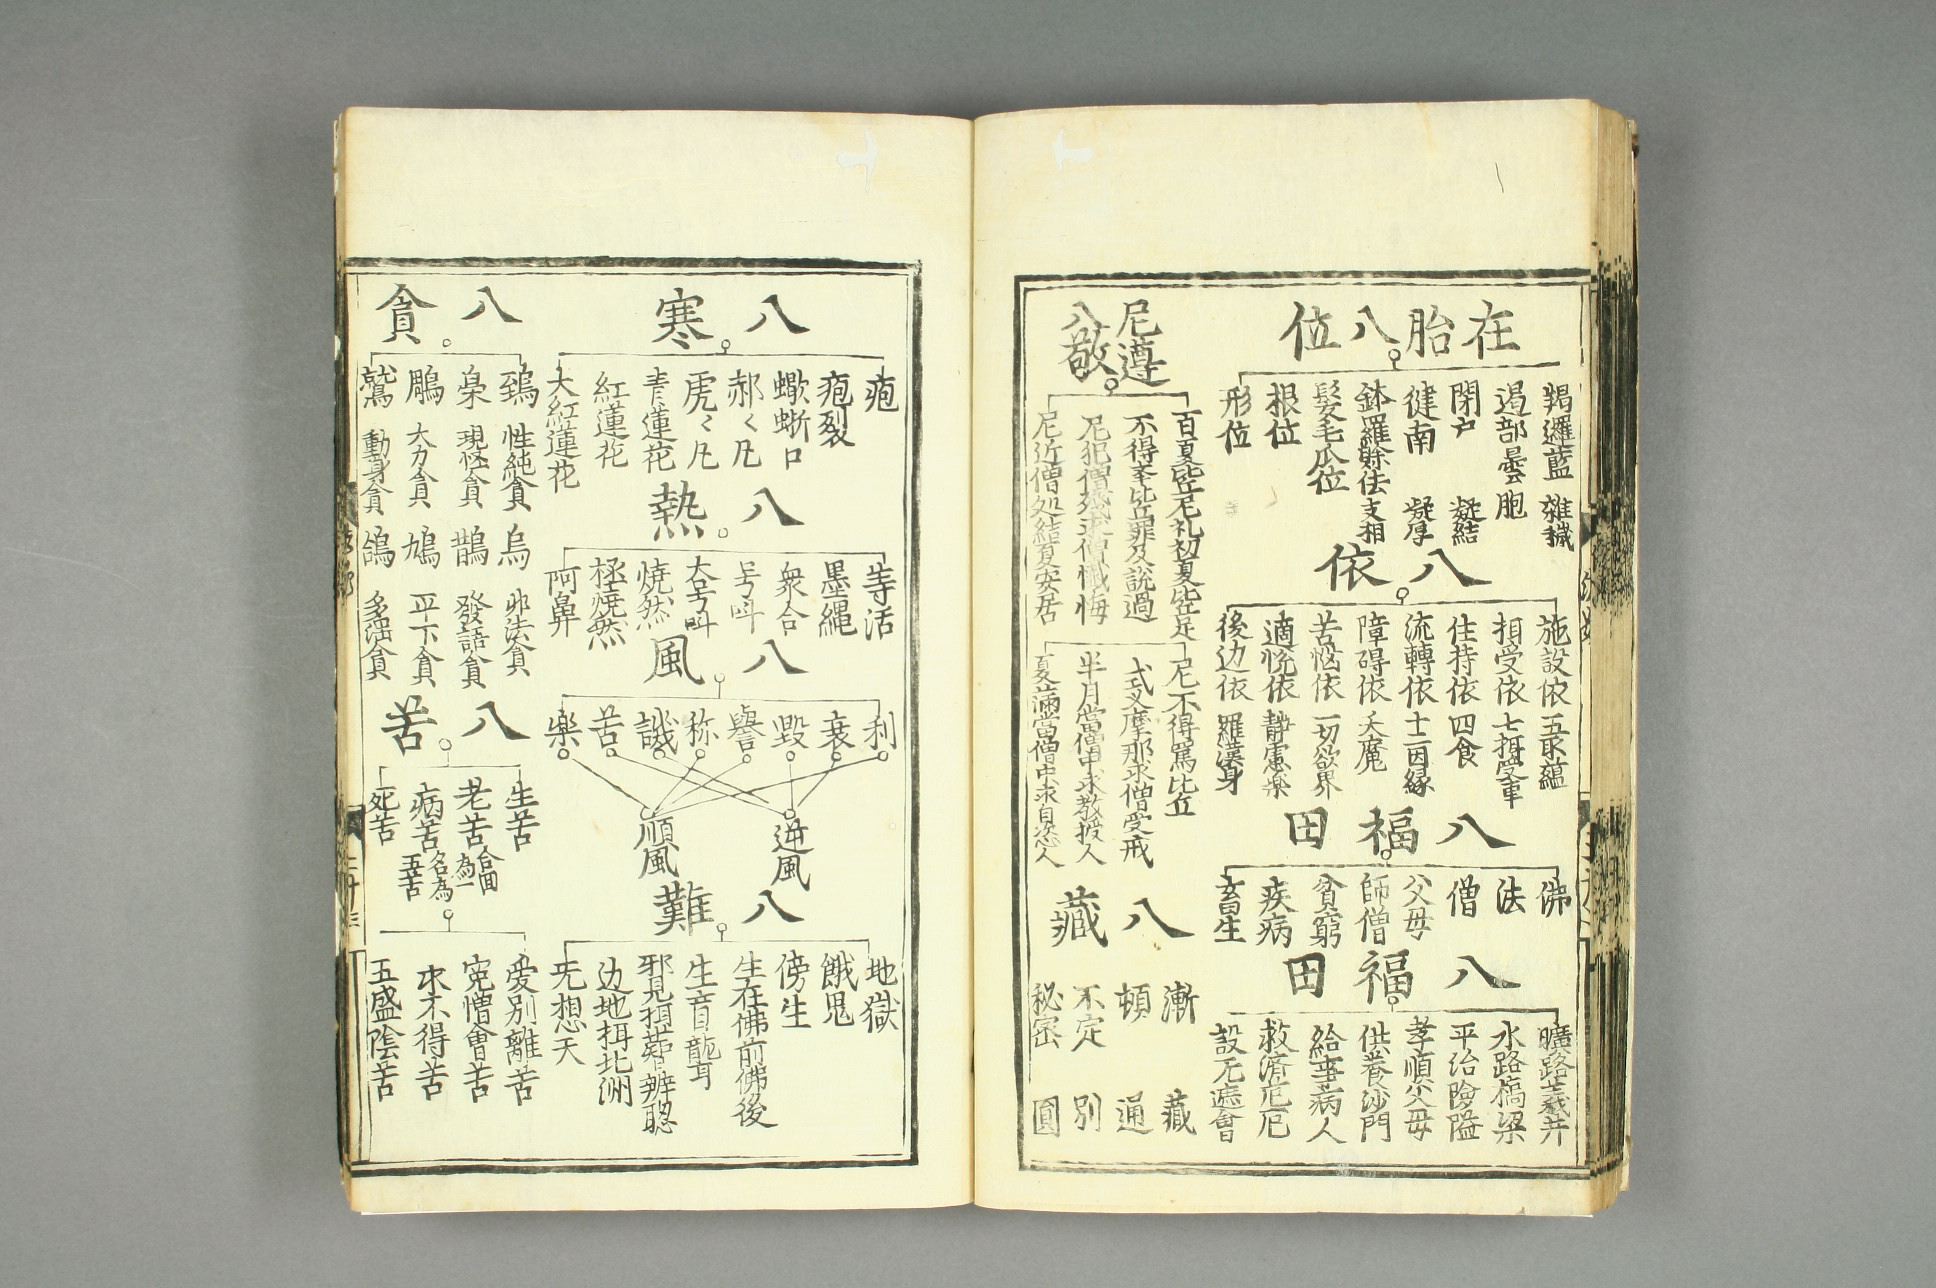 在胎八位
羯邏藍 雜穢
遏部曇 胞
閉尸 凝結
健南 凝厚
鉢羅賖佉 支相
髮毛爪位
根位
形位
八依
施設依 五取蘊
攝受依 七攝受事
住持依 四食
流轉依 十二因緣
障碍依 天魔
苦惱依 一切欲界
適悅依 靜慮樂
後边依 羅漢身
八福田
佛
法
僧
父母
師僧
貧窮
疾病
畜生
八福田
曠路義井
水路橋梁
平治險隘
孝順父母
供養沙門
給事病人
救濟危厄
設无遮會
尼遵八敬
百夏比丘尼礼初夏比丘足
不得率比丘罪及說過
尼犯僧殘求僧懺悔
尼近僧処結夏安居
尼不得罵比丘
式叉摩那求僧受戒
半月當僧中求教授人
夏滿當僧中求自恣人
八藏
漸
頓
不定
秘密
藏
通
別
圓
八寒
疱
疱裂
蠍蜥口
郝〻凡
虎〻凡
青蓮花
紅蓮花
大紅蓮花
八熱
等活
黑繩
衆合
号叫
大号叫
燒然
極燒然
阿鼻
八風
利
衰
毀
譽
称
譏
苦
樂
逆風
順風
八難
地獄
餓鬼
傍生
生在佛前佛後
生盲聾耳
邪見攝世智辨聰
边地攝北洲
无想天
八貪
鵄 性純貪
梟 現怪貪
鵰 大力貪
鷲 動身貪
烏 非法貪
鵲 發語貪
鳩 平下貪
鴿 多婬貪
八苦
生苦
老苦
病苦
死苦
合四
為一
名為
五苦
愛別離苦
寃憎會苦
求不得苦
五盛陰苦
二十三